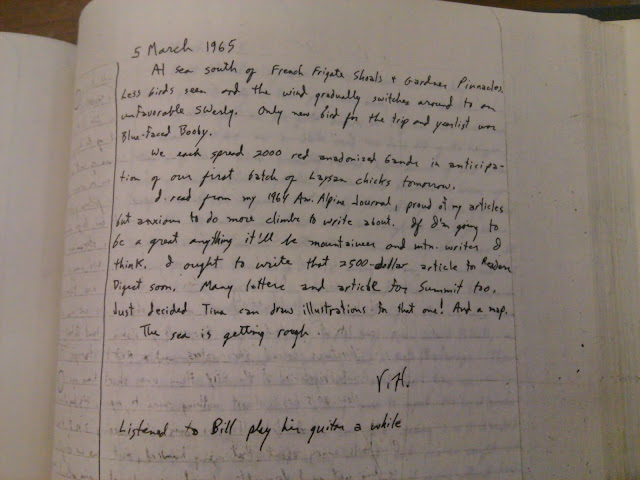 5 March 1965
At sea south of French Frigate Shoals + Gardner Pinnacles.
Less birds seen and the wind gradually switches around to an
unfavorable SWerly. Only new bird for the trip and yearlist was
Blue-Faced Booby.
We each spread 2000 red anadonized bands in anticipa-
tion of our first batch of Laysan chicks tomorrow.
I read from my 1964 Am. Alpine Journal, proud of my articles
but anxious to do more climbs to write about. If I'm going to
be a great anything it'll be mountaineer and mtn. writer I
think. I ought to write that 2500-dollar article to Readers
Digest soon. Many letters and article for Summit too.
Just decided Tina can draw illustrations for that one! And a map.
The sea is getting rough.
V.H.
Listened to Bill play his guitar a while